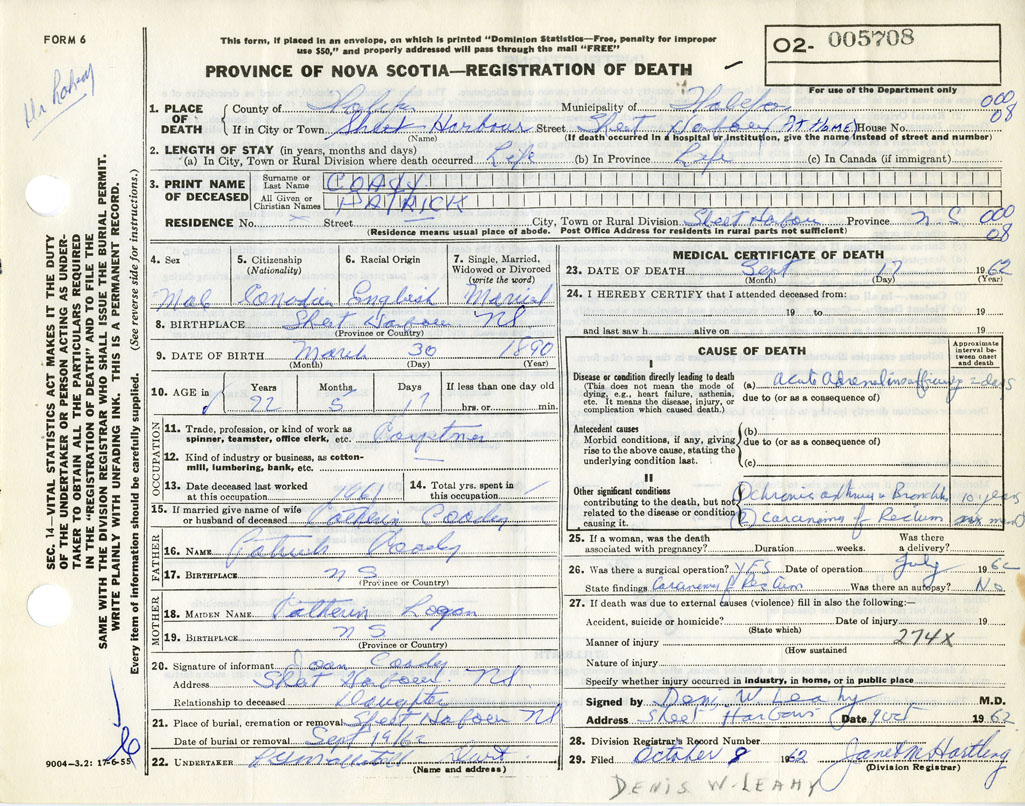 FORM 6
This form, if placed in an envelope, on which is printed "Dominion Statistics—Free, penalty for improper
use $50," and properly addressed will pass through the mail "FREE"
O2- 005708
PROVINCE OF NOVA SCOTIA—REGISTRATION OF DEATH
For use of the Department only
000
08
1. PLACE OF DEATH
County of Halifax Municipality of
If in City or Town Sheet Harbour Street Sheet Harbour (AT HOME) House No.
(Name) (If death occurred in a hospital or institution, give the name instead of street and number)
2. LENGTH OF STAY (in years, months and days)
(a) In City, Town or Rural Division where death occurred Life (b) In Province Life (c) In Canada (if immigrant)
3. PRINT NAME OF DECEASED
Surname or Last Name COADY
All Given or Christian Names PATRICK
RESIDENCE No. Street City, Town or Rural Division Sheet Harbour Province N S 000
08
(Residence means usual place of abode. Post Office Address for residents in rural parts not sufficient)
4. Sex Male
5. Citizenship (Nationality) Canadian
6. Racial Origin English
7. Single, Married, Widowed or Divorced (write the word) Married
8. BIRTHPLACE Sheet Harbour NS
(Province or Country)
9. DATE OF BIRTH March 30 1890
(Month) (Day) (Year)
10. AGE in Years 72 Months 5 Days 17 If less than one day old hrs. or min.
OCCUPATION
11. Trade, profession, or kind of work as
spinner, teamster, office clerk, etc.
12. Kind of industry or business, as cotton-
mill, lumbering, bank, etc.
13. Date deceased last worked
at this occupation 1961
14. Total yrs. spent in
this occupation
15. If married give name of wife
or husband of deceased Catherin Coady
FATHER
16. NAME Patrick Coady
17. BIRTHPLACE N S
(Province or Country)
MOTHER
18. MAIDEN NAME Catherin Logan
19. BIRTHPLACE N S
(Province or Country)
20. Signature of informant Joan Coady
Address Sheet Harbour NS
Relationship to deceased Daughter
21. Place of burial, cremation or removal Sheet Harbour NS
Date of burial or removal Sept 19/62
22. UNDERTAKER
(Name and address)
MEDICAL CERTIFICATE OF DEATH
23. DATE OF DEATH Sept 17 1962
(Month) (Day) (Year)
24. I HEREBY CERTIFY that I attended deceased from:
19 to 19
and last saw h alive on 19
CAUSE OF DEATH
Approximate interval between onset and death
I
Disease or condition directly leading to death
(This does not mean the mode of
dying, e.g., heart failure, asthenia,
etc. It means the disease, injury, or
complication which caused death.)
(a) Acute Adrenal insufficiency days
due to (or as a consequence of)
Antecedent causes
Morbid conditions, if any, giving
rise to the above cause, stating the
underlying condition last.
(b)
due to (or as a consequence of)
(c)
II
Other significant conditions
contributing to the death, but not
related to the disease or condition
causing it.
1) Chronic asthma Bronchitis 10 years
2) Carcinoma of Rectum six
25. If a woman, was the death
associated with pregnancy? Duration weeks. Was there
a delivery?
26. Was there a surgical operation? YES Date of operation July 1962
State findings Carcinoma of Rectum Was there an autopsy? No
27. If death was due to external causes (violence) fill in also the following:—
Accident, suicide or homicide? Date of injury 19
(State which)
Manner of injury 274X
(How sustained
Nature of injury
Specify whether injury occurred in industry, in home, or in public place
Signed by Denis W Leahy M.D.
Address Sheet Harbour Date 9 Oct 1962
28. Division Registrar's Record Number
29. Filed October 8 1962
(Division Registrar)
DENIS W. LEAHY
SEC. 14—VITAL STATISTICS ACT MAKES IT THE DUTY
OF THE UNDERTAKER OR PERSON ACTING AS UNDER-
TAKER TO OBTAIN ALL THE PARTICULARS REQUIRED
IN THE "REGISTRATION OF DEATH" AND TO FILE THE
SAME WITH THE DIVISION REGISTRAR WHO SHALL ISSUE THE BURIAL PERMIT.
WRITE PLAINLY WITH UNFADING INK. THIS IS A PERMANENT RECORD.
Every item of information should be carefully supplied. (See reverse side for instructions.)
9004-3.2: 17-6-55